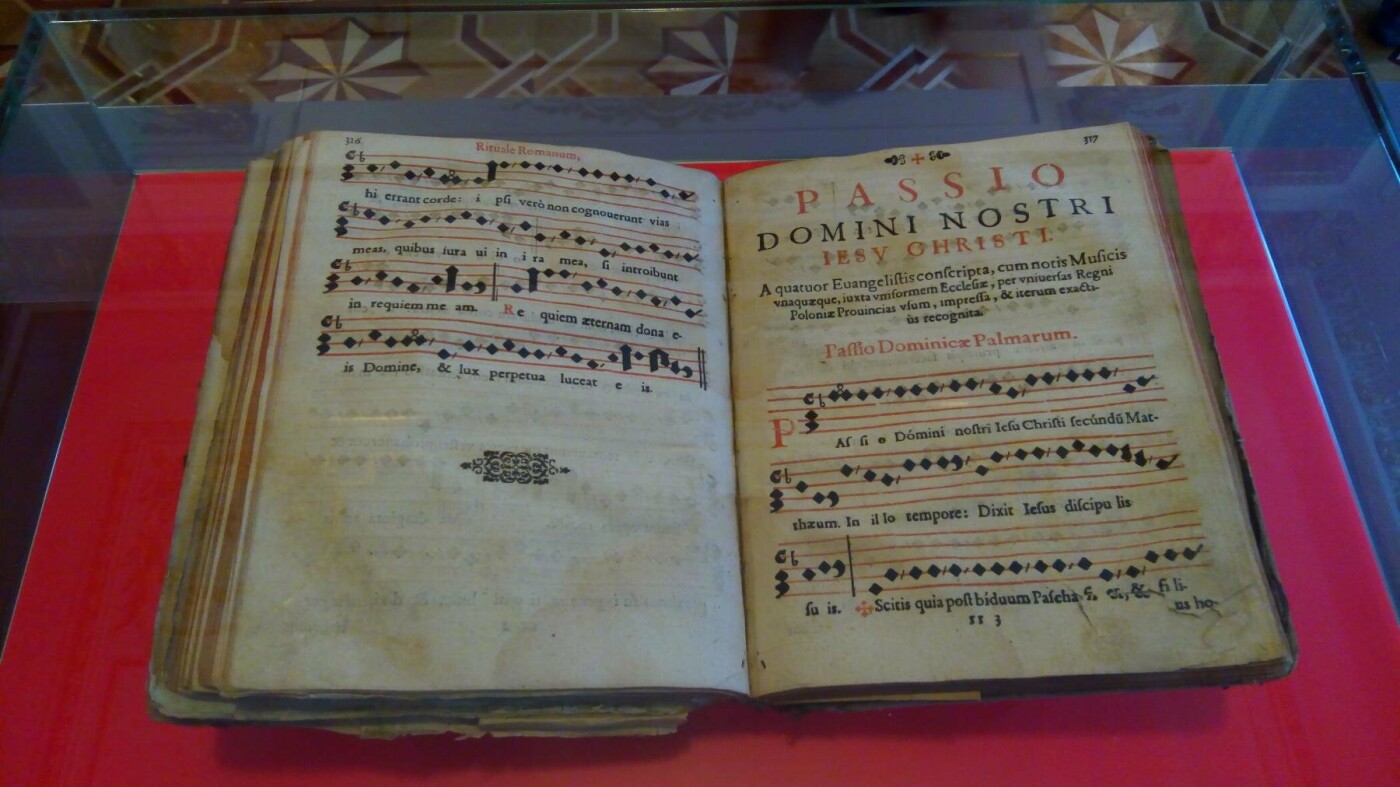 316
Rituale Romanum,
hi errant corde: i psi verò non cognouerunt vias
meas, quibus iura ui in i ra mea, si introibunt
in requiem me am. Re quiem æternam dona e-
is Domine, & lux perpetua luceat e is.
317
PASSIO
DOMINI NOSTRI
IESV CHRISTI.
A quatuor Euangelistis conscripta, cum notis Musicis
vnaquæque, iuxta vniformem Ecclesiæ, per vniuersas Regni
Poloniæ Prouincias vsum, impressa, & iterum exacti-
ùs recognita.
Passio Dominicæ Palmarum.
PAs si o Dómini nostri Iesu Christi secúndũ Mat-
thæum. In il lo tempore: Dixit Iesus discipu lis
su is. Scitis quia post biduum Pascha & fi li-
us ho-
ss 3